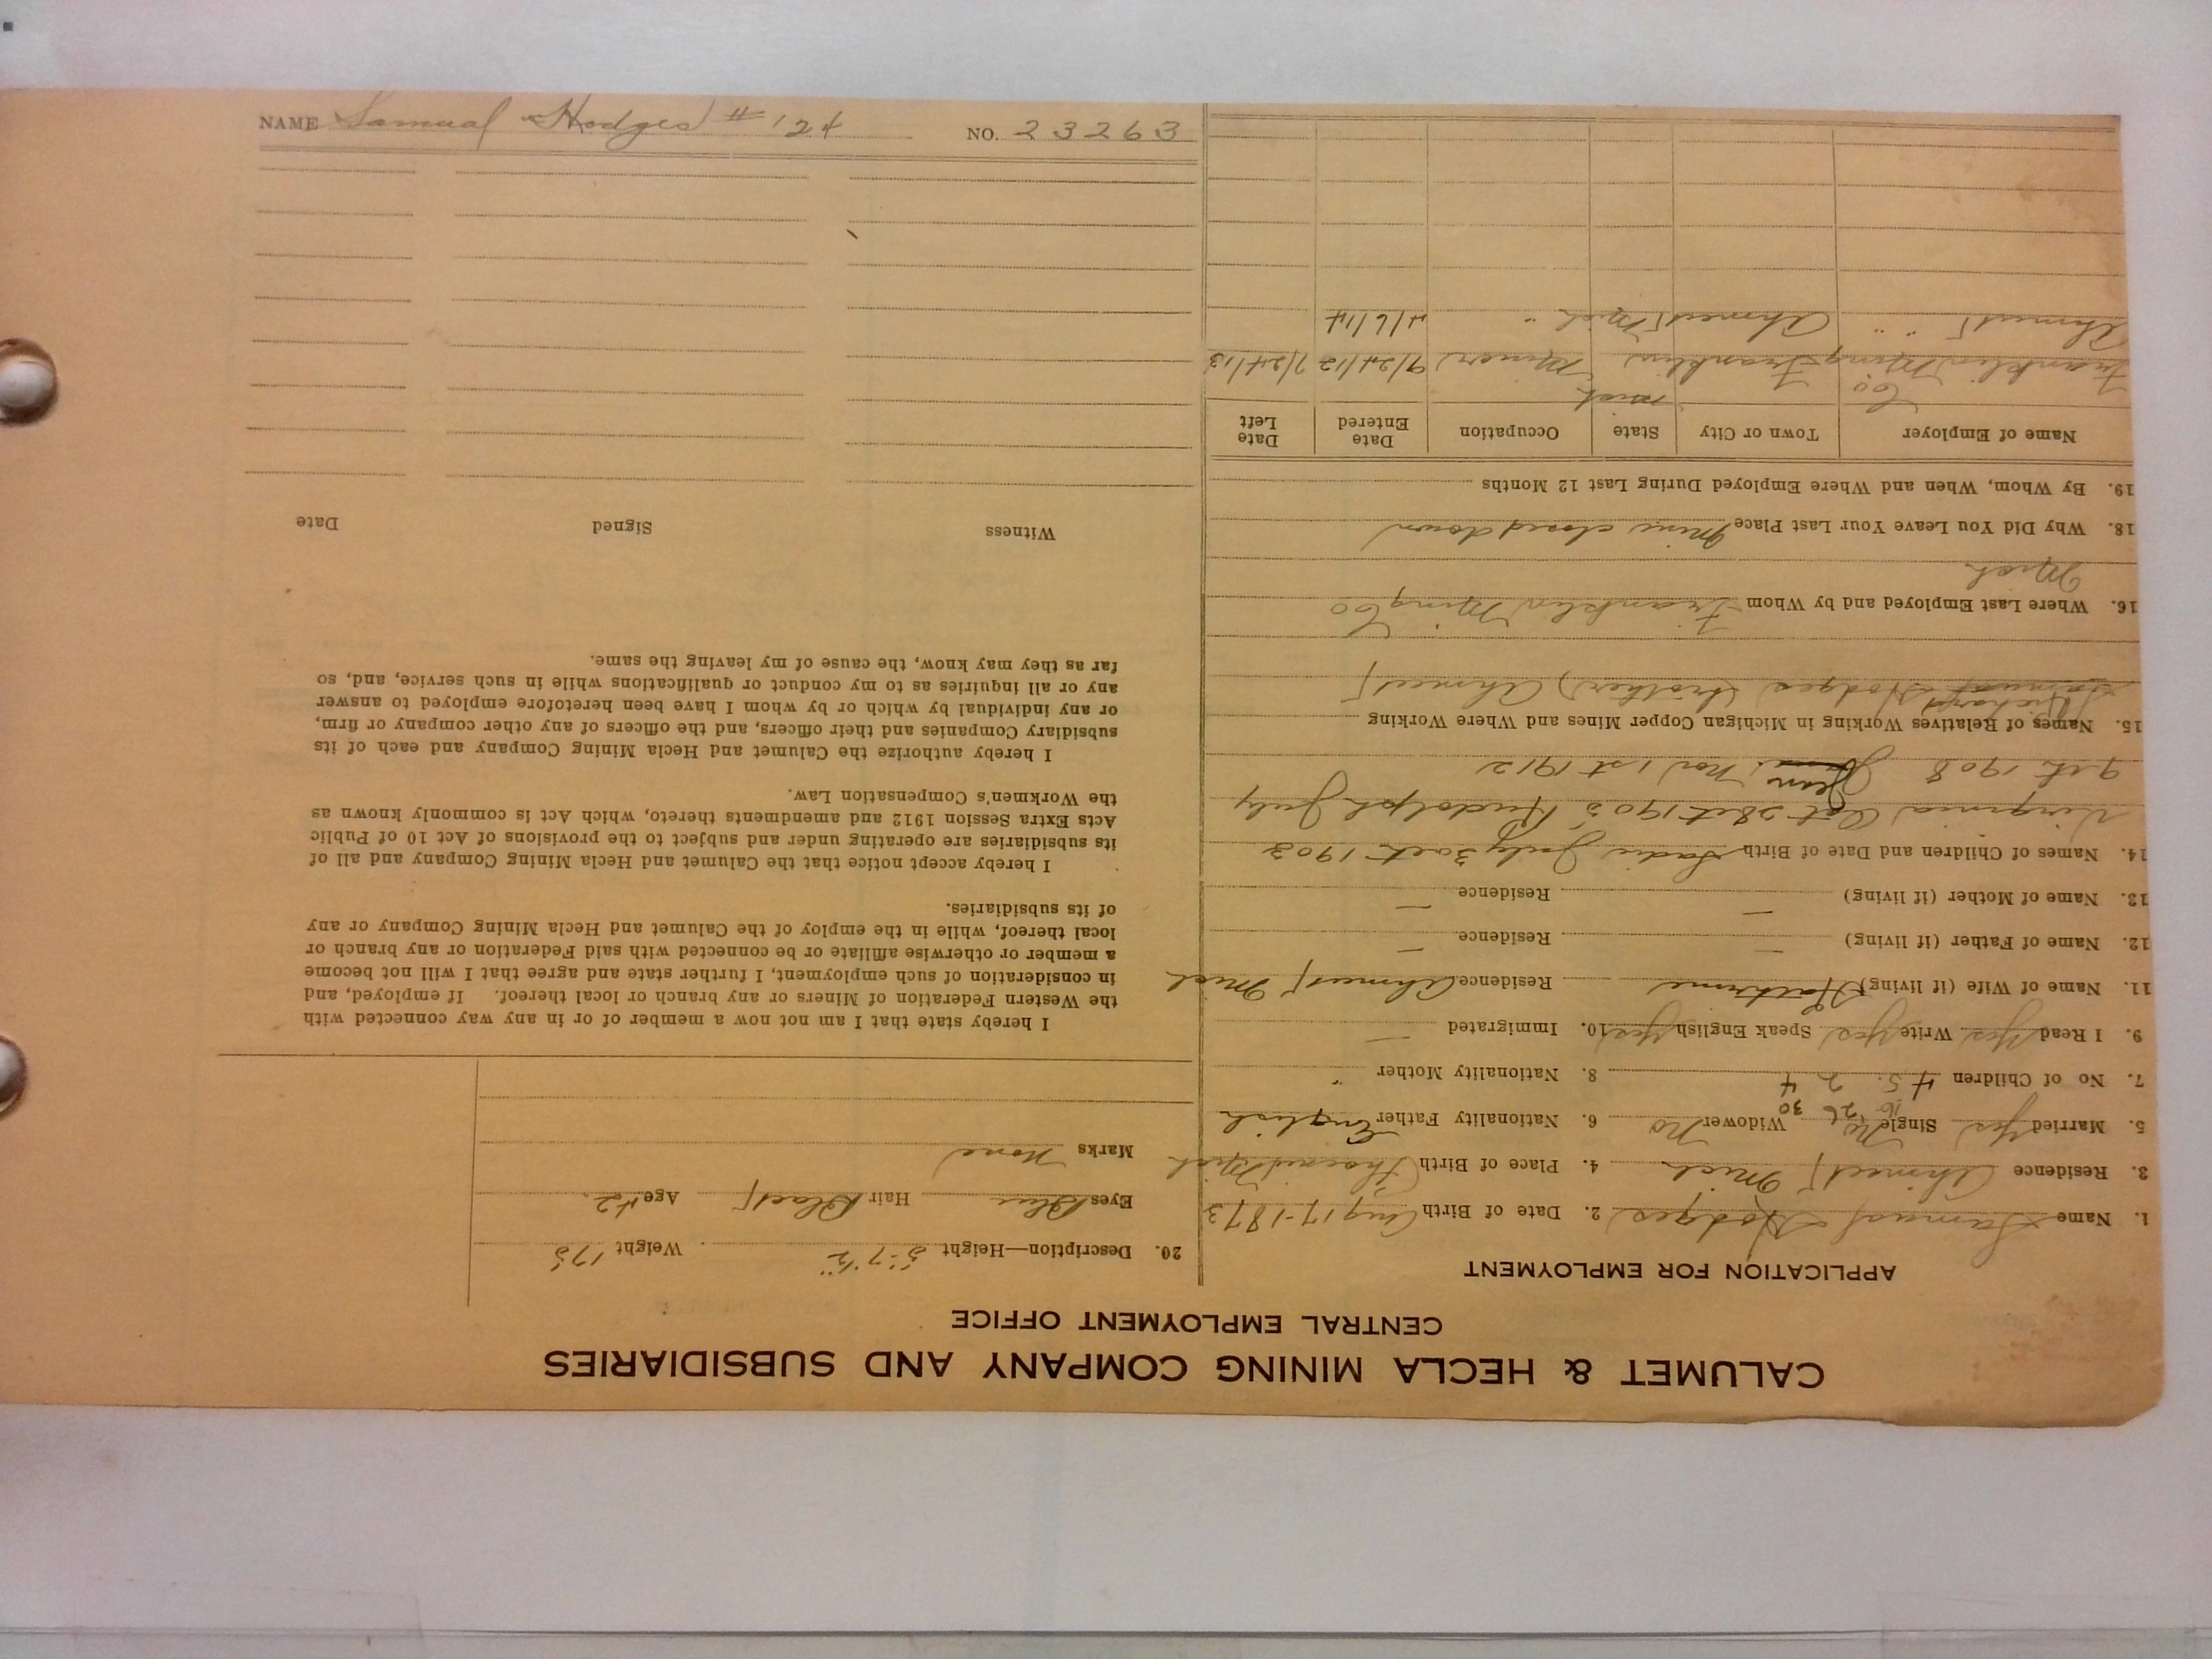 CALUMET & HECLA MINING COMPANY AND SUBSIDIARIES
CENTRAL EMPLOYMENT OFFICE
APPLICATION FOR EMPLOYMENT
1. Name Samual Hodges 2. Date of Birth Aug 17-1873
3. Residence Ahmeek Mich 4. Place of Birth Phoenix Mich
5. Married Yes Single No Widower No 6. Nationality Father English
16 26 30
7. No of Children 4 5. 2 4 8. Nationality Mother "
9. I Read Yes Write Yes Speak English Yes 10. Immigrated —
11. Name of Wife (if living) Residence Ahmeek Mich
12. Name of Father (if living) — Residence —
13. Name of Mother (if living) — Residence —
14. Names of Children and Date of Birth Sadie July 30et 1903
Virginia Oct 28et 1905 Rudolph July
9et 1908 Jean Nov 1st 1912
15. Names of Relatives Working in Michigan Copper Mines and Where Working
Richard
Samual Hodges (brother) Ahmeek
16. Where Last Employed and by Whom Franklin Ming Co
Mich
18. Why Did You Leave Your Last Place Mine closed down
19. By Whom, When and Where Employed During Last 12 Months
Name of Employer Town or City State Occupation Date Entered Date Left
Franklin Ming Co Franklin Mich Miner 9/24/12 7/24/13
Ahmeek " " Ahmeek Mich " 4/6/14
20. Description—Height 5'-7 1/2" Weight 175
Eyes Blue Hair Black Age 42
Marks None
I hereby state that I am not now a member of or in any way connected with
the Western Federation of Miners or any branch or local thereof. If employed, and
in consideration of such employment, I further state and agree that I will not become
a member or otherwise affiliate or be connected with said Federation or any branch or
local thereof, while in the employ of the Calumet and Hecla Mining Company or any
of its subsidiaries.
I hereby accept notice that the Calumet and Hecla Mining Company and all of
its subsidiaries are operating under and subject to the provisions of Act 10 of Public
Acts Extra Session 1912 and amendments thereto, which Act is commonly known as
the Workmen's Compensation Law.
I hereby authorize the Calumet and Hecla Mining Company and each of its
subsidiary Companies and their officers, and the officers of any other company or firm,
or any individual by which or by whom I have been heretofore employed to answer
any or all inquiries as to my conduct or qualifications while in such service, and, so
far as they may know, the cause of my leaving the same.
Witness Signed Date
NAME Samual Hodges # 124 NO. 23263